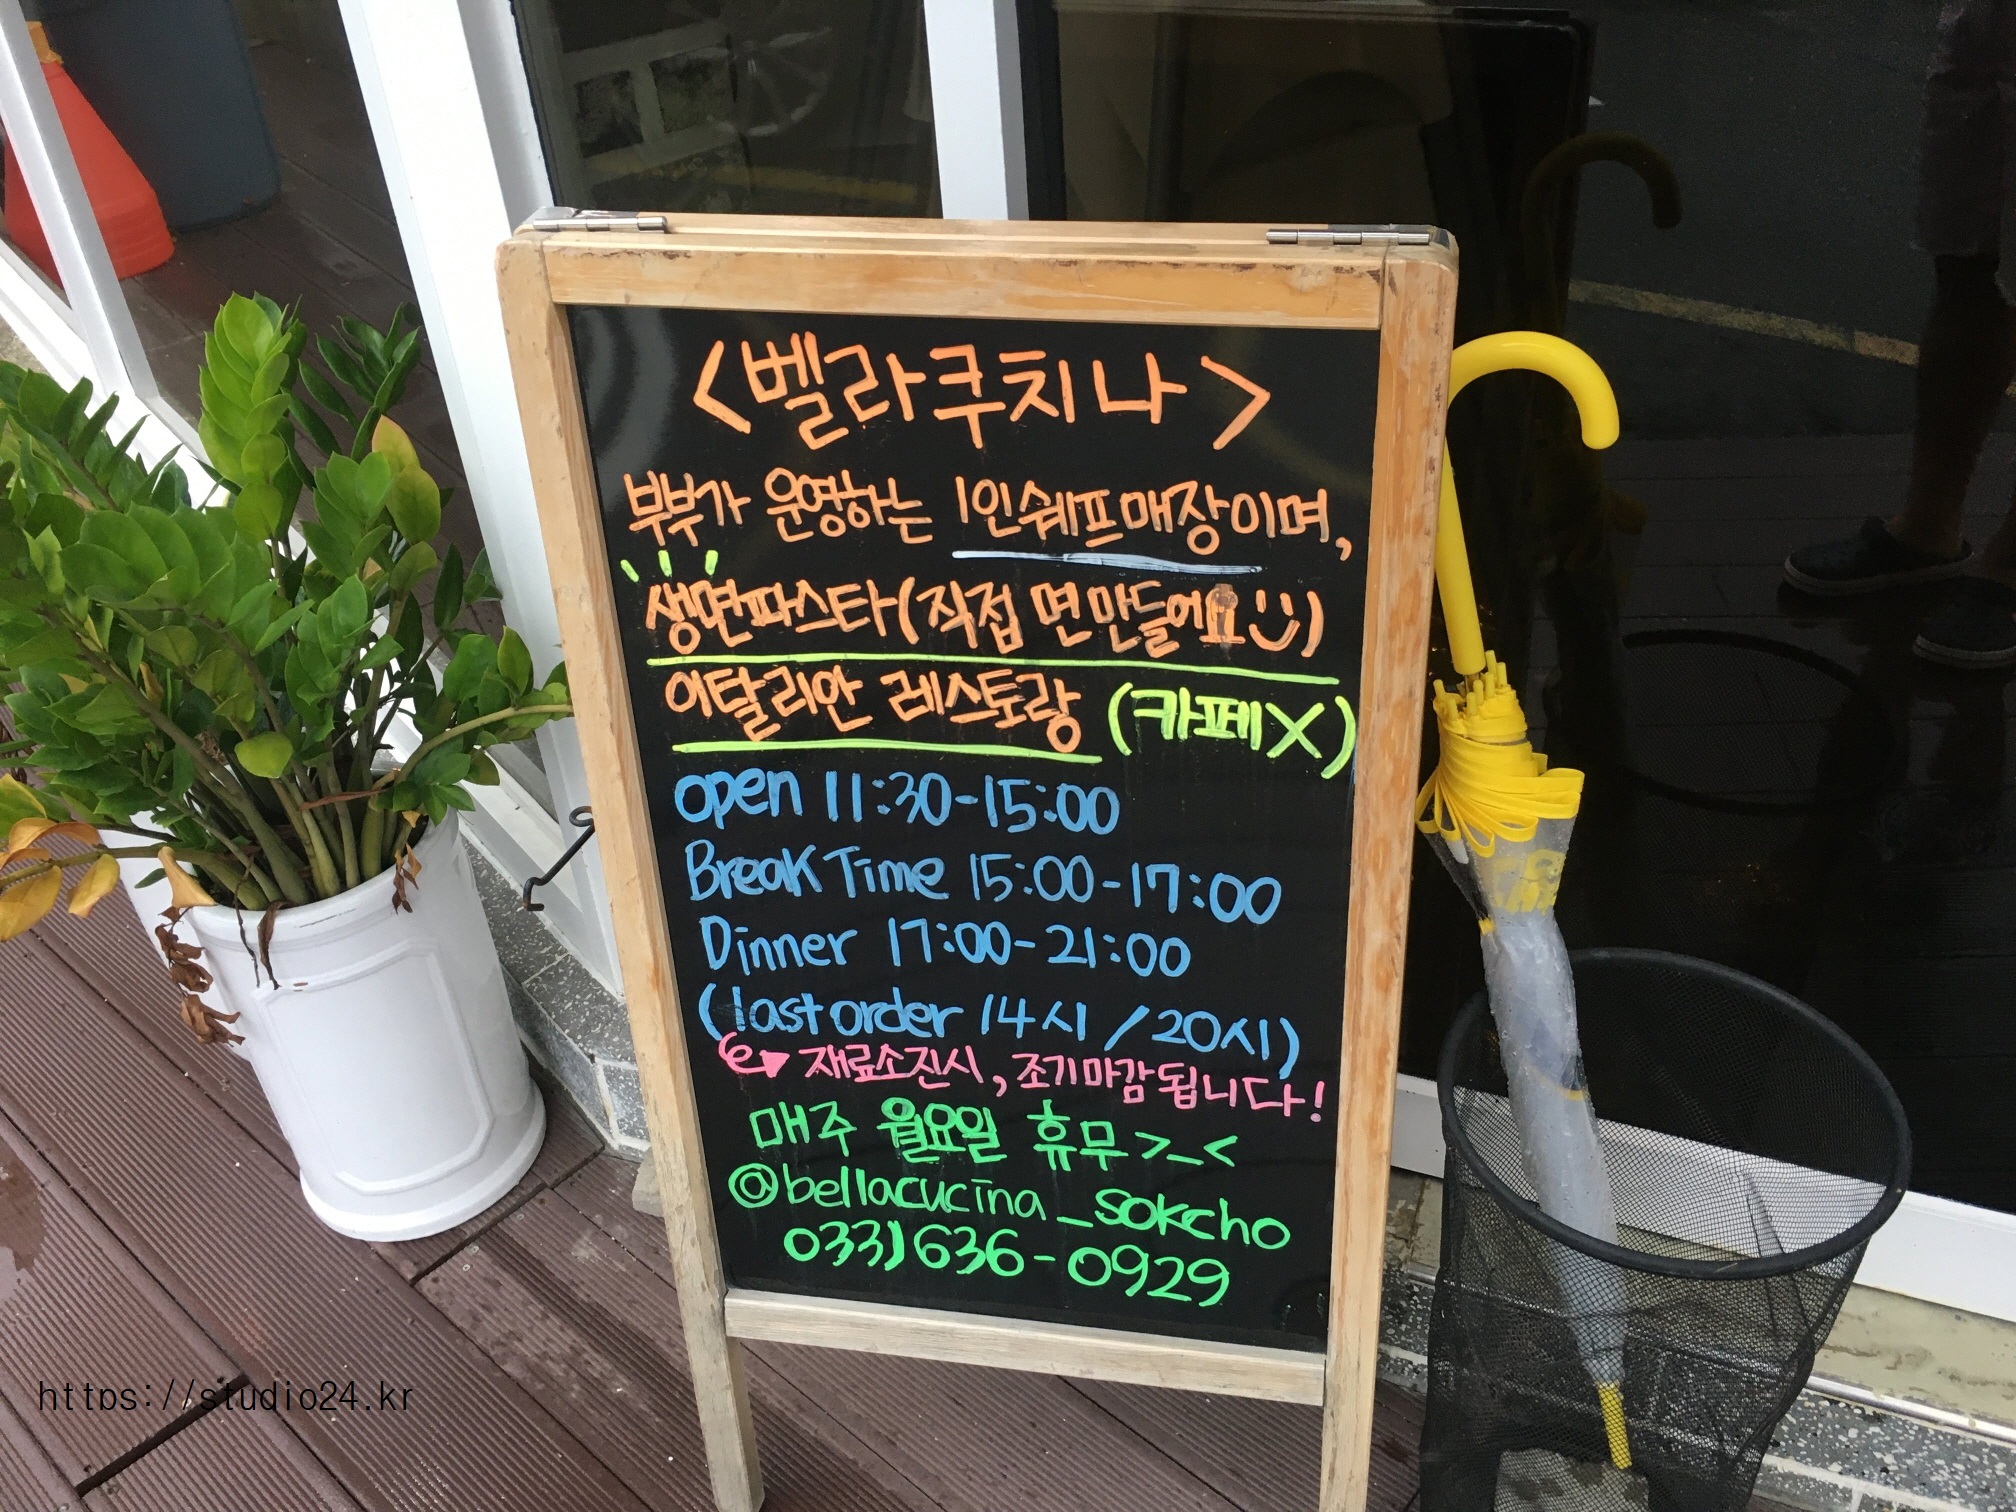 <벨라쿠치나>
부부가 운영하는 1인쉐프매장이며,
생면파스타(직접 면만들어요:))
이탈리안 레스토랑 (카페X)
open 11:30-15:00
Break Time 15:00-17:00
Dinner 17:00-21:00
(last order 14시/20시)
재료소진시, 조기마감됩니다!
매주 월요일 휴무>_<
@bellacucina_sokcho
033)636-0929
https://studio24.kr